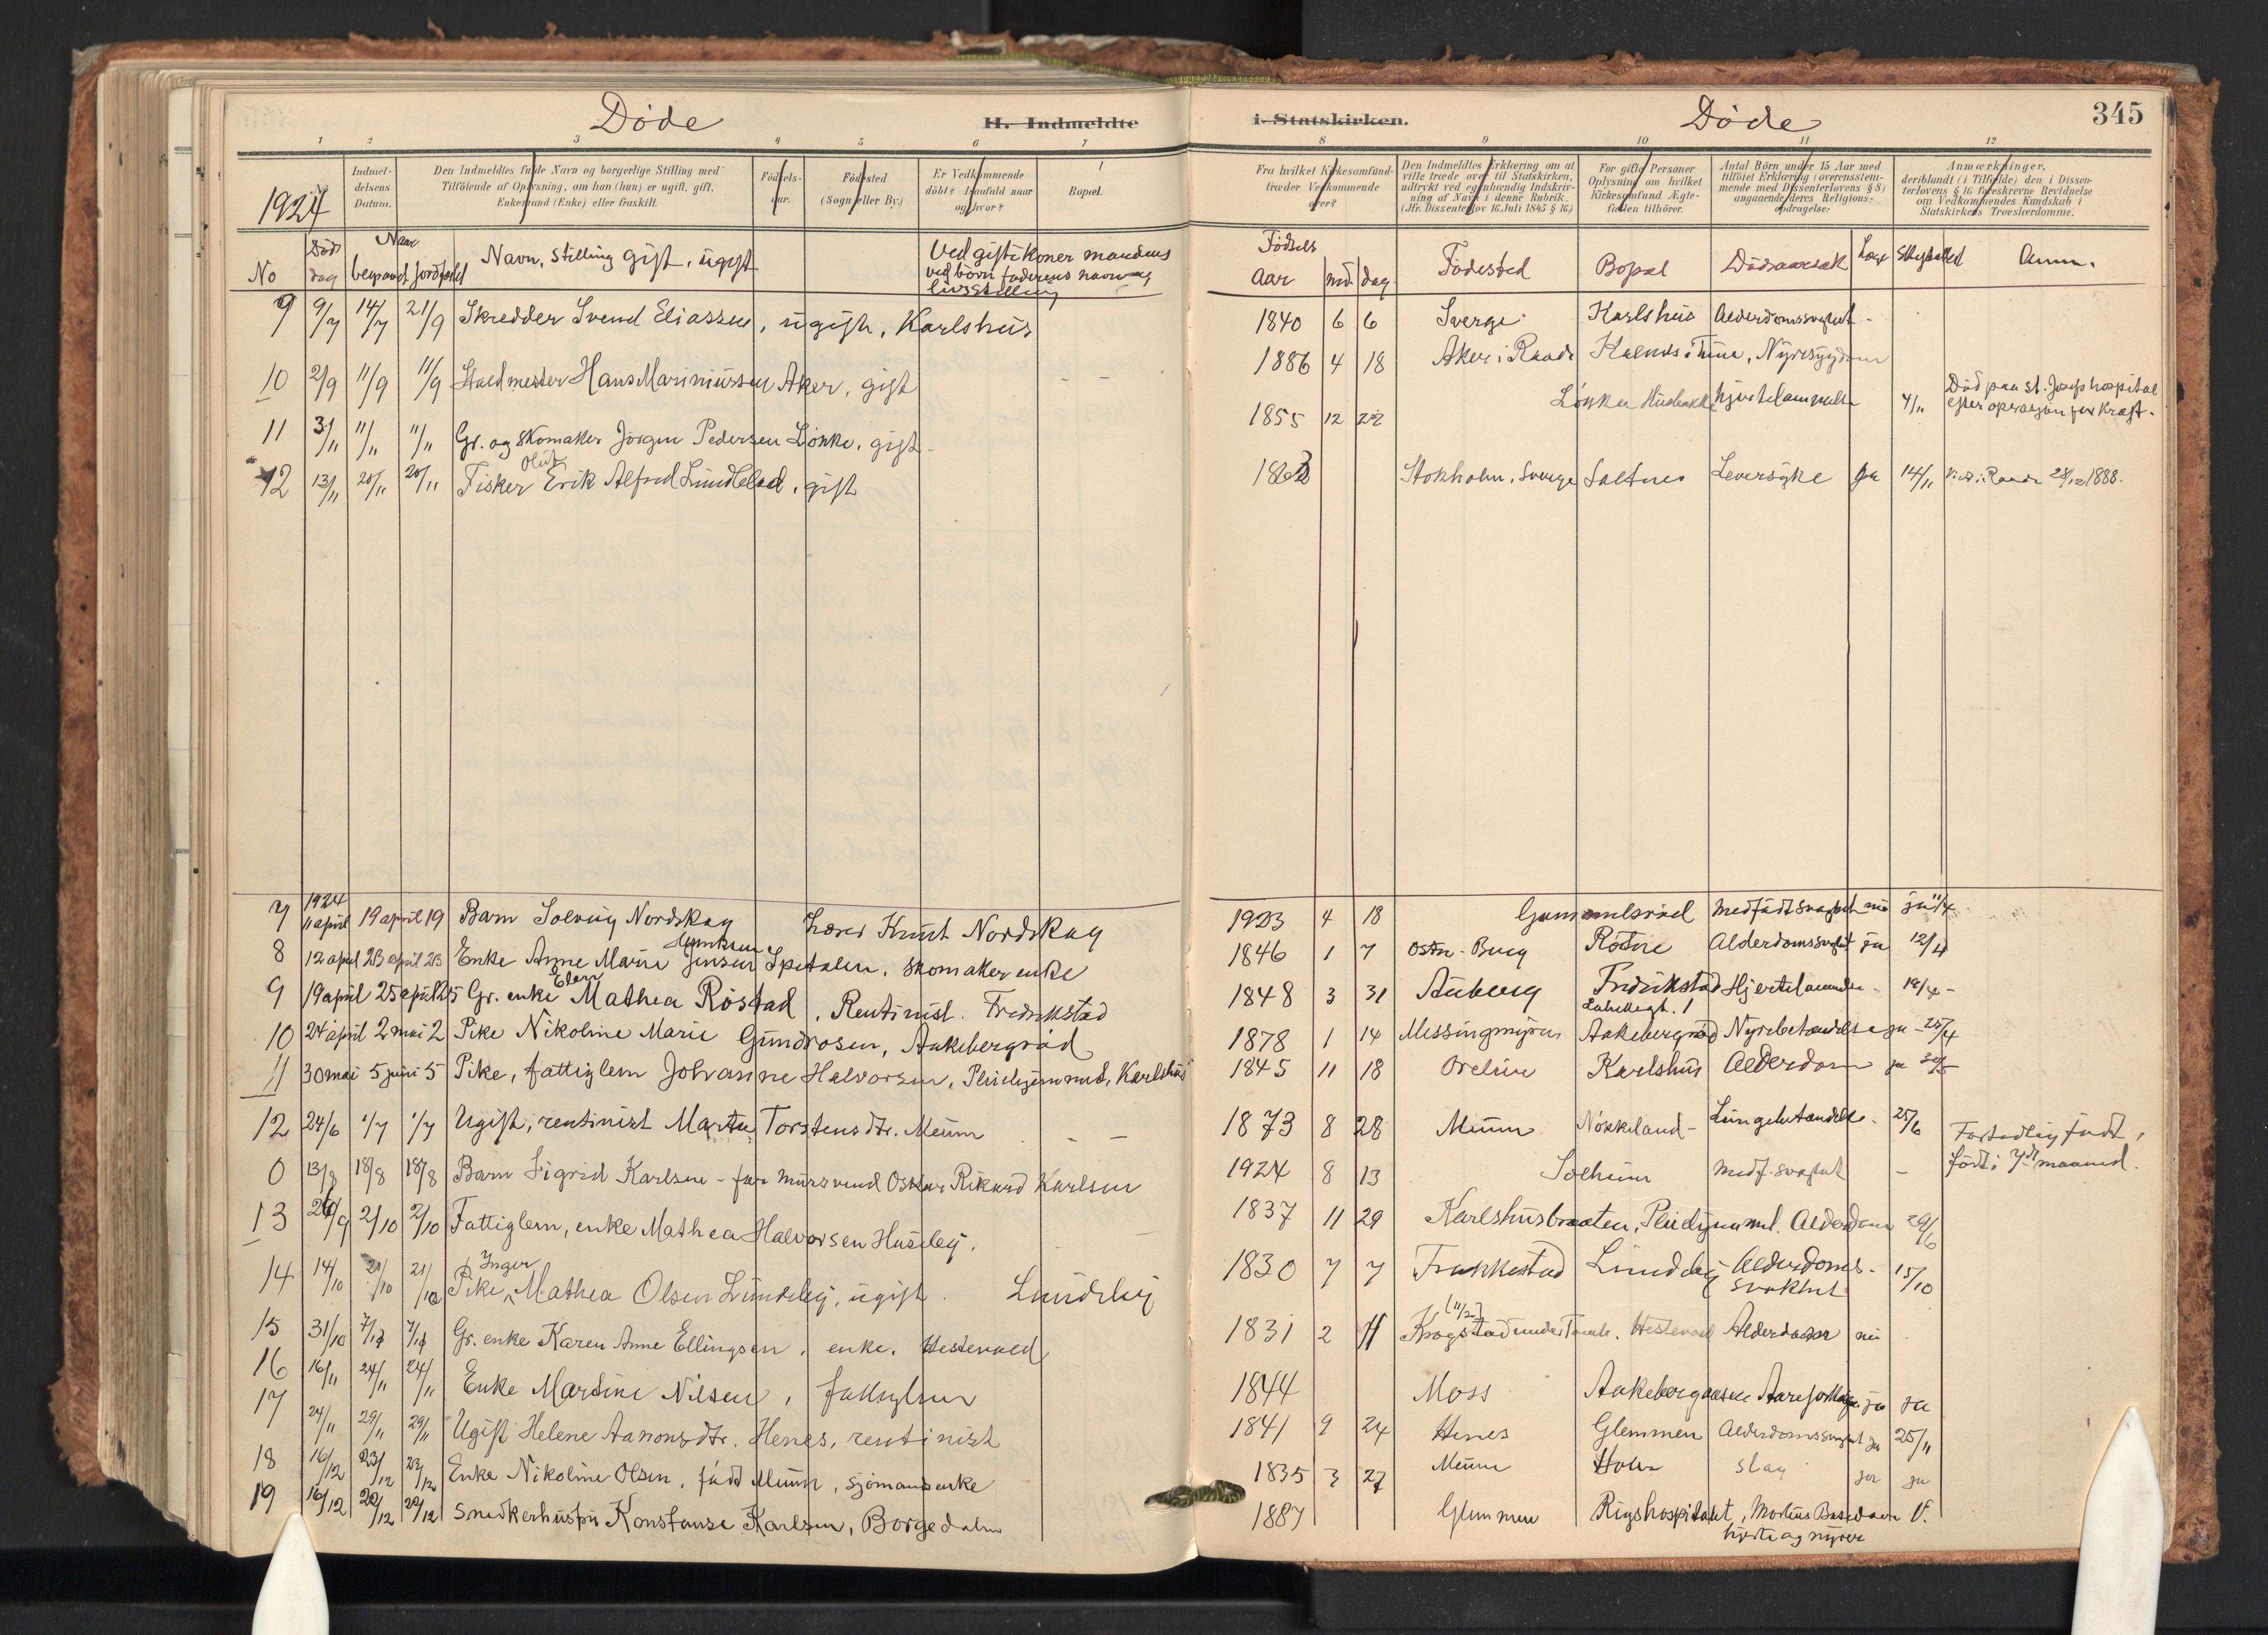 Døde
H. Indmeldte
i Statskirken.
Døde
345
1 2 3 4 5 6 7
8 9 10 11 12
Indmeldelsens Datum.
Den Indmeldtes fulde Navn og borgerlige Stilling med Tilføiende af Oplysning, om han (hun) er ugift, gift, Enkemand (Enke) eller fraskilt.
Fødselsaar.
Fødested (Sogn eller By.)
Er Vedkommende døbt? Isaafald naar og hvor?
Bopæl.
Fra hvilket Kirkesamfund træder Vedkommende over?
Den Indmeldtes Erklæring om at ville træde over til Statskirken, udtrykt ved egenhændig Indskrivning af Navn i denne Rubrik. (Jfr. Dissenterlov 16. Juli 1845 § 16)
For gifte Personer Oplysning om hvilket Kirkesamfund Ægtefællen tilhører.
Antal Børn under 15 Aar med tilføiet Erklæring (overensstemmende med Dissenterlovens § 8) angaaende deres Religionsopdragelse.
Anmærkninger, deriblandt (i Tilfælde) den i Dissenterlovens § 16 foreskrevne Bevidnelse om Vedkommendes Kundskab i Statskirkens Troeslærdomme.
1924
No Døds dag Naar begravet jordfæstet Navn, stilling gift, ugift Ved gifte koner mandens ved børn faderens navn og livsstilling
Fødsels Aar md. dag Fødested Bopæl Dødsaarsak Læge Anm.
9 9/7 14/7 21/9 Skredder Svend Eliassen, ugift, Karlshus
1840 6 6 Sverge Karlshus Alderdomssvakhet
10 2/9 11/9 11/9 Hans Marinius Aker, gift
1886 4 18 Aker i Raade Nyresygdom
11 3/11 11/11 11/11 Gr. og skomaker Jørgen Pedersen Lønke, gift
1855 12 22 Lønke Husbakke hjertelammelse 4/11 Død paa St. Josefs hospital efter operasjon for kræft.
12 13/11 20/11 20/11 Fisker Erik Oluf Alfred Lundblad, gift
1862 Stokholm, Sverge Saltnes Leversyke ja 14/11 Viet i Raade 28/12 1888.
7 1924 11 april 19 april 19 Barn Solveig Nordskag Lærer Knut Nordskag
1923 4 18 Gammelsrød Medfødt svakhet nei ja 11/4
8 12 april 23 april 23 Enke Anne Marie Jensen Spetalen, skomakerenke
1846 1 7 Alderdomssvakhet ja 12/4
9 19 april 25 april 25 Gr. enke Elen Mathea Røstad, Rentinist. Fredrikstad
1848 3 31 Fredrikstad Hjertelammelse 19/4
10 24 april 2 mai 2 Pike Nikoline Marie Gundrosen, Aakebergrød
1878 1 14 Messingmyren Aakebergrød Nyrebetændelse ja 25/4
11 30 mai 5 juni 5 Pike, fattiglem Johanne Halvorsen, Pleiehjemmet, Karlshus
1845 11 18 Karlshus Alderdom ja 30/5
12 24/6 1/7 1/7 Ugift, rentinist Marte Torstensdtr. Meum
1873 8 28 Meum Nøkkeland Lungebetændelse 25/6
0 13/8 18/8 18/8 Barn Sigrid Karlsen - far mursvend Oskar Rikard Karlsen
1924 8 13 Solheim medf. svakhet - Fortidlig født, født i 7de maaned.
13 26/9 2/10 2/10 Fattiglem, enke Mathea Halvorsen Huseby.
1837 11 29 Karlshusbraaten, Pleiehjemmet. Alderdom 29/6
14 14/10 21/10 21/10 Pike, Inger Mathea Olsen Lundeby, ugift. Lundeby
1830 7 7 Lundeby Alderdomssvakhet 15/10
15 31/10 7/11 7/11 Gr. enke Karen Anne Ellingsen, enke, Hestevold
1831 2 11 Krogstad Hestevold Alderdom nei
16 16/11 24/11 24/11 Enke Martine Nilsen, fattiglem
1844 Moss ja ja
17 24/11 29/11 29/11 Ugift Helene Aanonsdtr. Henes, rentinist
1841 9 24 Henes Glemmen Alderdomssvakhet ja 25/11
18 16/12 23/12 23/12 Enke Nikoline Olsen, født Meum, sjømandsenke
1835 3 27 Meum slag ja ja
19 16/12 20/12 20/12 Snedkerhustru Konstanse Karlsen, Borgedalen
1887 Glemmen Rigshospitalet, Morbus Basedowi V.
hjerte og nyrer